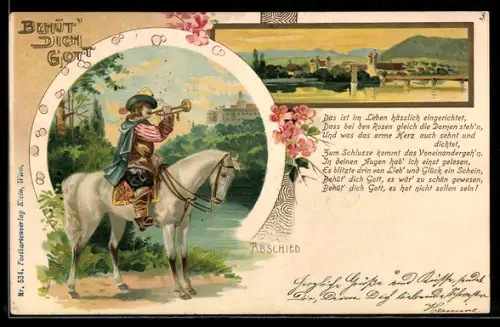 Behüt'
Dich
Gott
3.
Das ist im Leben hässlich eingerichtet,
Dass bei den Rosen gleich die Dornen steh'n,
Und was das arme Herz auch sehnt und
dichtet,
Zum Schlusse kommt das Voneinandergeh'n.
In deinen Augen hab' ich einst gelesen,
Es blitzte drin von Lieb' und Glück ein Schein,
Behüt' dich Gott, es wär' zu schön gewesen,
Behüt' dich Gott, es hat nicht sollen sein!
Abschied
Nr. 534, Postkartenverlag Wien.
Herzliche Grüße und Küsse sendet
Dir, Deine Dich liebende Schwester
Hermine